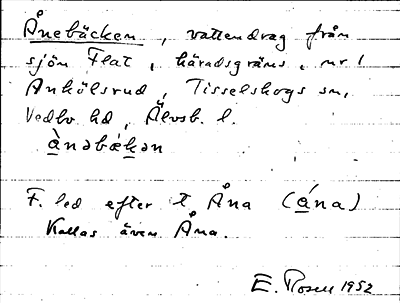 Ånebäcken, vattendrag från
sjön Flat, häradsgräns, nr 1
Ankölsrud, Tisselskogs sn,
Vedbo hd, Älvsb. l.
ànəbækən
F. led efter t Åna (ána)
Kallas även Åna.
E. Rosell 1952